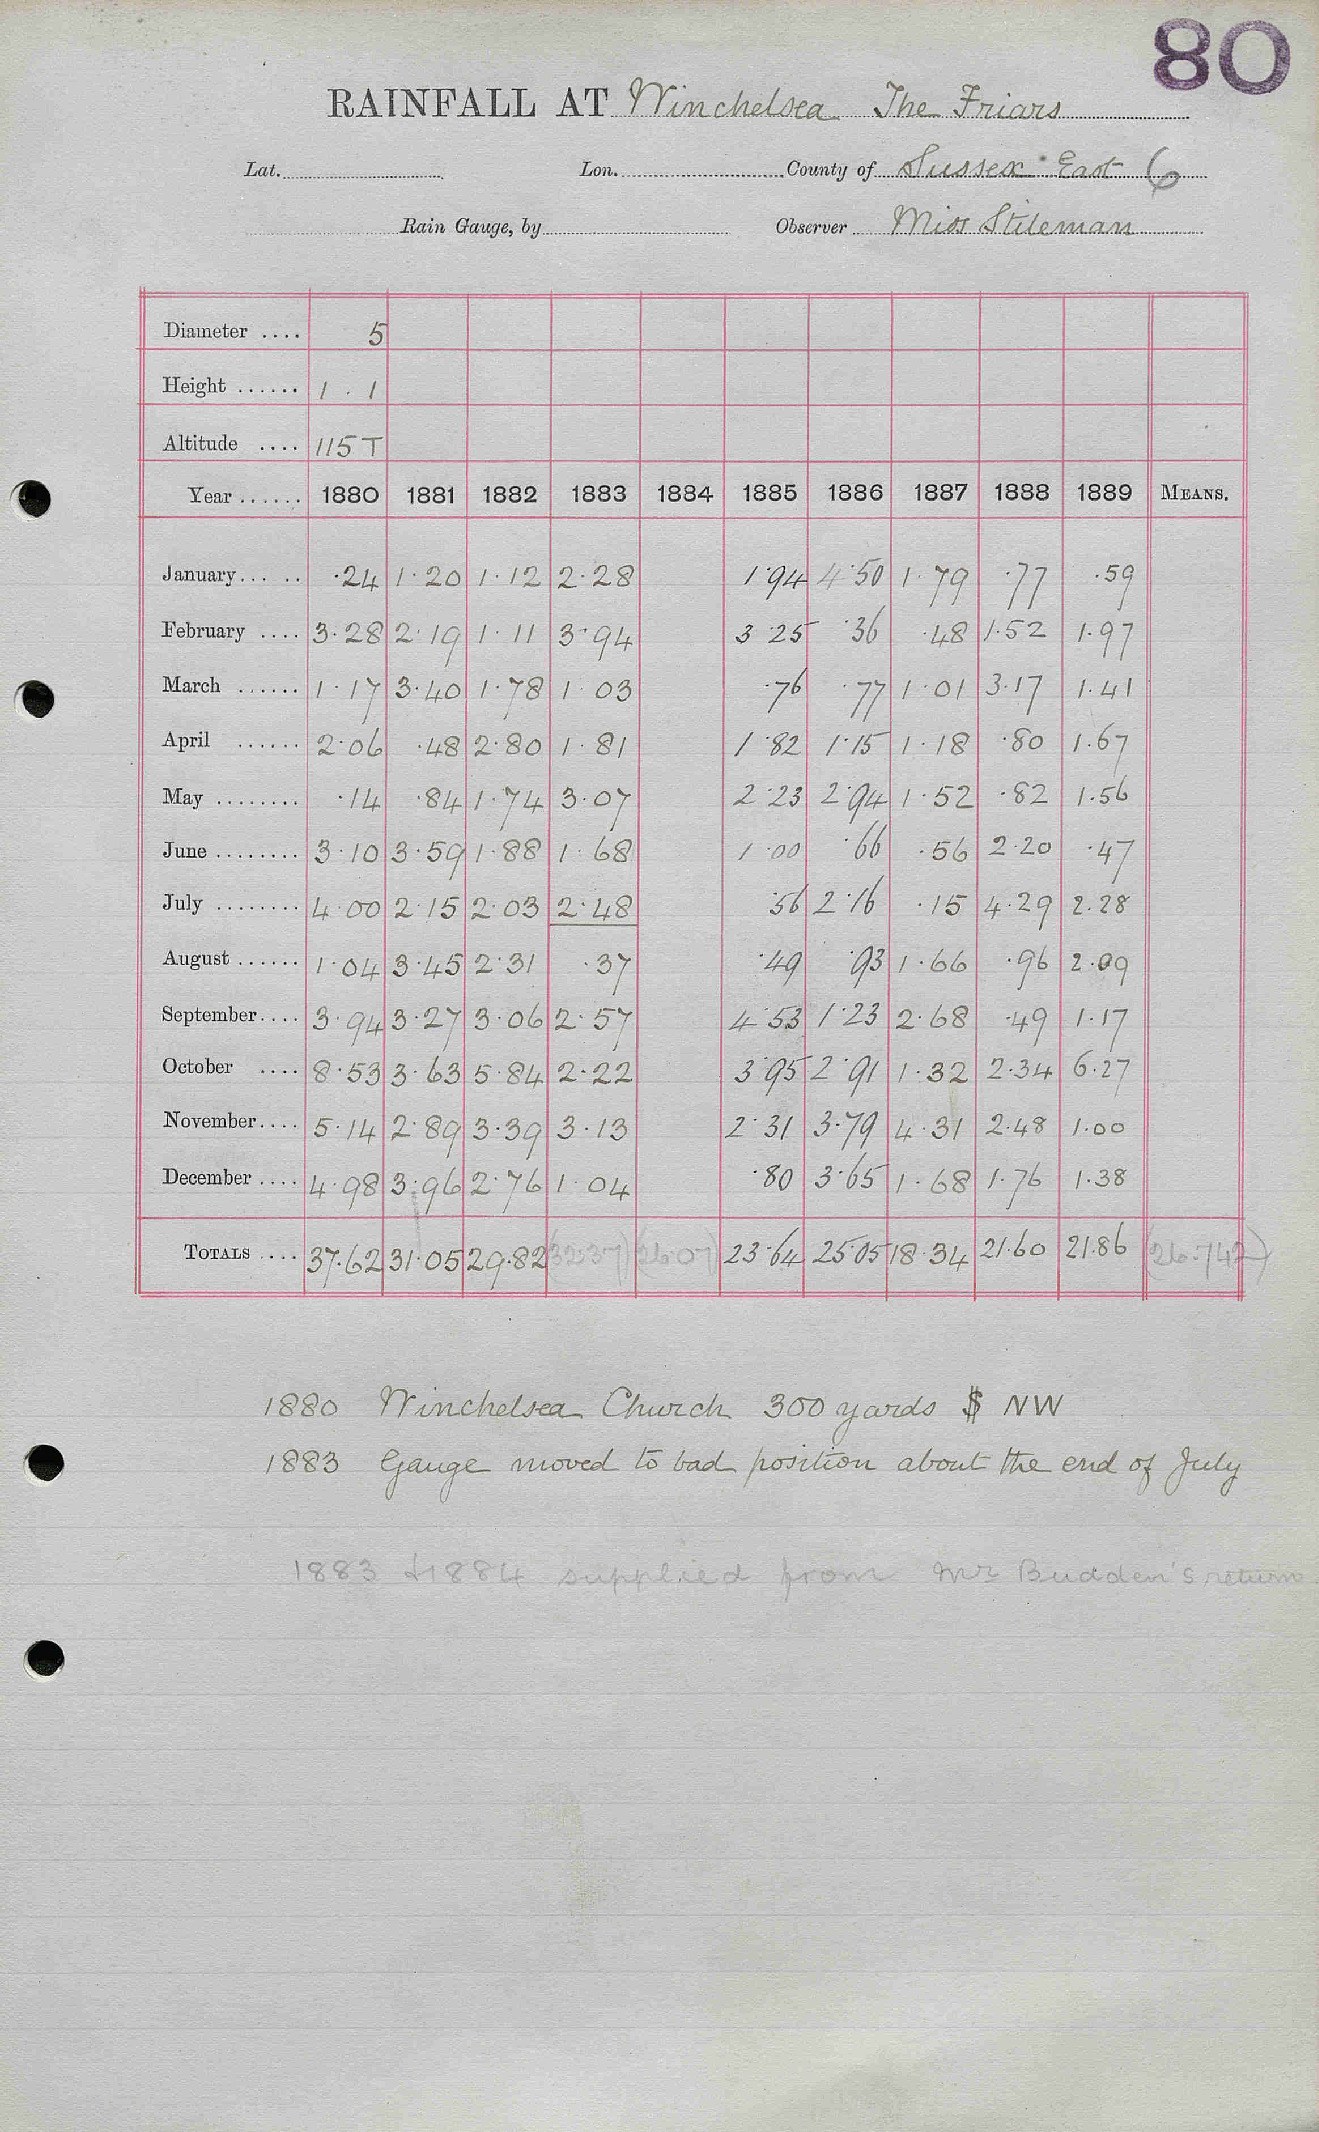 80
RAINFALL AT Winchelsea The Friars
Lat. Lon. County of Sussex East 6
Rain Gauge, by Observer Miss Stileman
Diameter .... 5
Height ...... 1 . 1
Altitude .... 115 T
Year ...... 1880 1881 1882 1883 1884 1885 1886 1887 1888 1889 MEANS.
January... .. ·24 1·20 1·12 2·28 1·94 4·50 1·79 ·77 ·59
February .... 3·28 2·19 1·11 3·94 3·25 ·36 ·48 1·52 1·97
March ...... 1·17 3·40 1·78 1·03 ·76 ·77 1·01 3·17 1·41
April ...... 2·06 ·48 2·80 1·81 1·82 1·15 1·18 ·80 1·67
May ........ ·14 ·84 1·74 3·07 2·23 2·94 1·52 ·82 1·56
June ........ 3·10 3·59 1·88 1·68 1·00 ·66 ·56 2·20 ·47
July ........ 4·00 2·15 2·03 2·48 ·56 2·16 ·15 4·29 2·28
August ...... 1·04 3·45 2·31 ·37 ·49 ·93 1·66 ·96 2·09
September.... 3·94 3·27 3·06 2·57 4·53 1·23 2·68 ·49 1·17
October .... 8·53 3·63 5·84 2·22 3·95 2·91 1·32 2·34 6·27
November.... 5·14 2·89 3·39 3·13 2·31 3·79 4·31 2·48 1·00
December .... 4·98 3·96 2·76 1·04 ·80 3·65 1·68 1·76 1·38
TOTALS .... 37·62 31·05 29·82 (32·37) (26·07) 23·64 25·05 18·34 21·60 21·86 (26·742)
1880 Winchelsea Church 300 yards $ NW
1883 Gauge moved to bad position about the end of July
1883 & 1884 supplied from Mr Budden's return